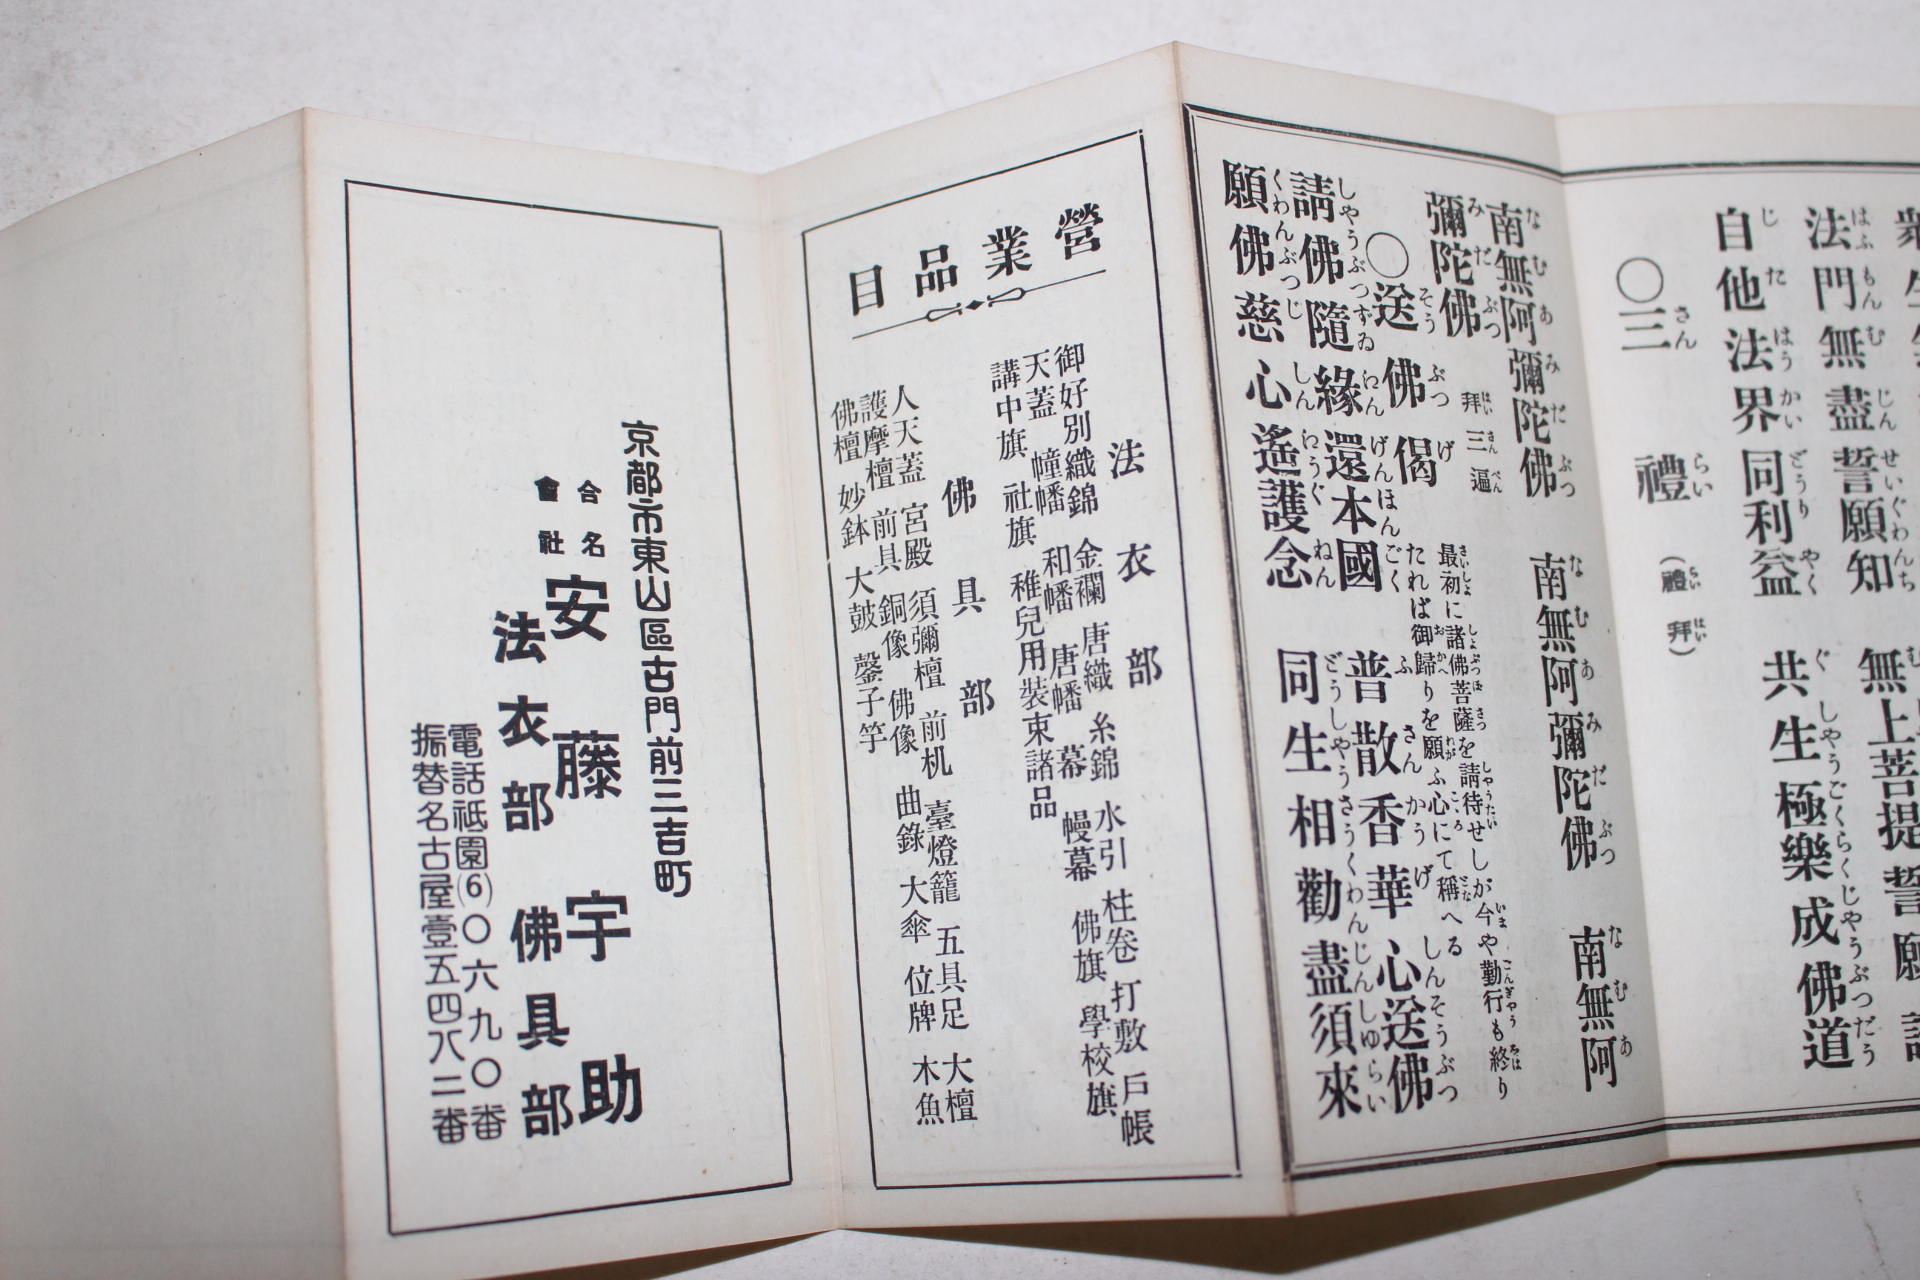 法門無盡誓願知
無上菩提誓願
自他法界同利益
共生極樂成佛道
〇三禮（禮拜）
南無阿彌陀佛　南無阿彌陀佛　南無阿
彌陀佛 拜三遍
〇送佛偈
最初に諸佛菩薩を請待せしが今や勤行も終り
たれば御歸りを願ふ心にて稱へる
請佛隨緣還本國　普散香華心送佛
願佛慈心遙護念　同生相勸盡須來
營業品目
法衣部
御好別織錦　金襴　唐織　糸錦　水引　柱卷　打敷　戶帳
天蓋　幢幡　和幡　唐幡　幕　幔幕　佛旗　學校旗
講中旗　社旗　稚兒用裝束諸品
佛具部
人天蓋　宮殿　須彌檀　前机　臺燈籠　五具足　大檀
護摩檀　前具　銅像　佛像　曲錄　大傘　位牌　木魚
佛檀　妙鉢　大鼓　磬子　竿
京都市東山區古門前三吉町
合名會社 安藤宇助
法衣部　佛具部
電話祗園(6)〇六九〇番
振替名古屋壹五四八二番